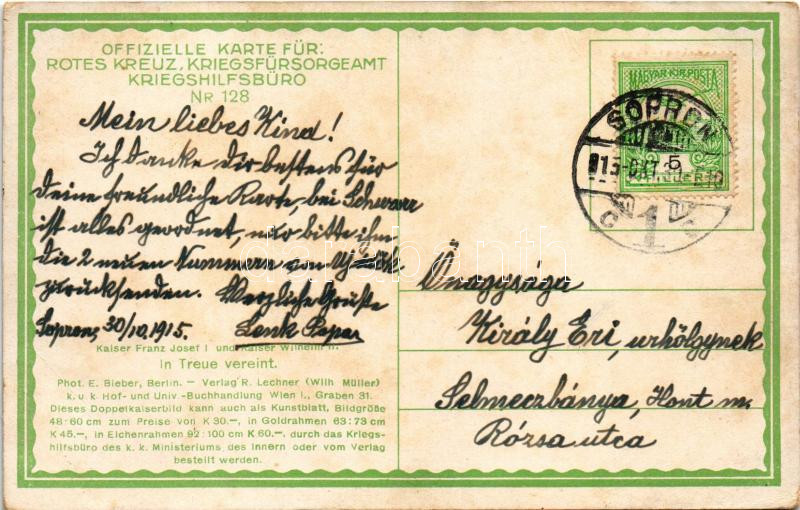 OFFIZIELLE KARTE FÜR:
ROTES KREUZ, KRIEGSFÜRSORGEAMT
KRIEGSHILFSBÜRO
NR 128
Mein liebes Kind!
Ich danke dir bestens für
deine freundliche Karte, bei
ist alles geordnet, nur bitte ihm
die 2 neuen Nummern von
zurücksenden. Herzliche Grüße
Sopron, 30/10.1915.
Kaiser Franz Josef I und Kaiser Wilhelm II.
In Treue vereint.
Phot. E. Bieber, Berlin. – Verlag R. Lechner (Wilh Müller)
k. u. k Hof- und Univ.-Buchhandlung Wien I., Graben 31.
Dieses Doppelkaiserbild kann auch als Kunstblatt, Bildgröße
48:60 cm zum Preise von K 30.–, in Goldrahmen 63:73 cm
K 45.–, in Eichenrahmen 92:100 cm K 60.–, durch das Kriegs-
hilfsbüro des k. k. Ministeriums des Innern oder vom Verlag
bestellt werden.
MAGYAR KIR. POSTA
SOPRON
5
1
Őnagysága
Király Eri, urhölgynek
Selmeczbánya, Hont m.
Rózsa utca
darabanth